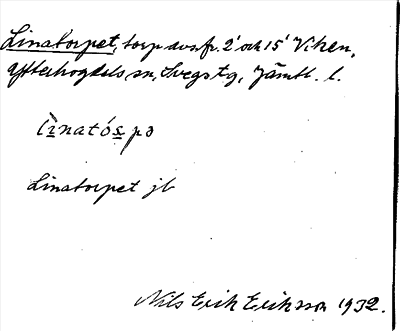 Linatorpet, torp avs. fr. 2' och 15' Viken,
Ytterhogdals sn, Svegs tg, Jämtl. l.
lìnató̀s̱pə
Linatorpet jb
Nils Erik Eriksson 1932.